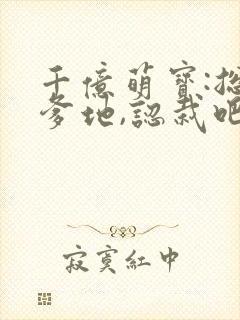 千億萌寶:總
爹地,認栽吧
寂寞紅中